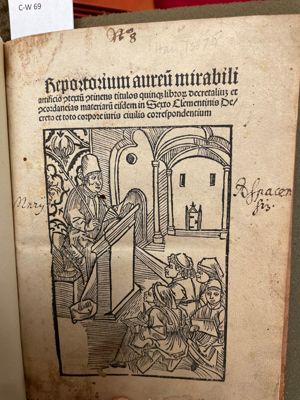 C-W 69
Reportorium aureū mirabili
artificio ꝯtextū ꝯtinens titulos quinqꝫ libroꝝ decretaliuꝫ et
ꝯcordancias materiarū eisdem in Sexto Clementinis De⸗
creto et toto corpore iuris ciuilis correspondentium